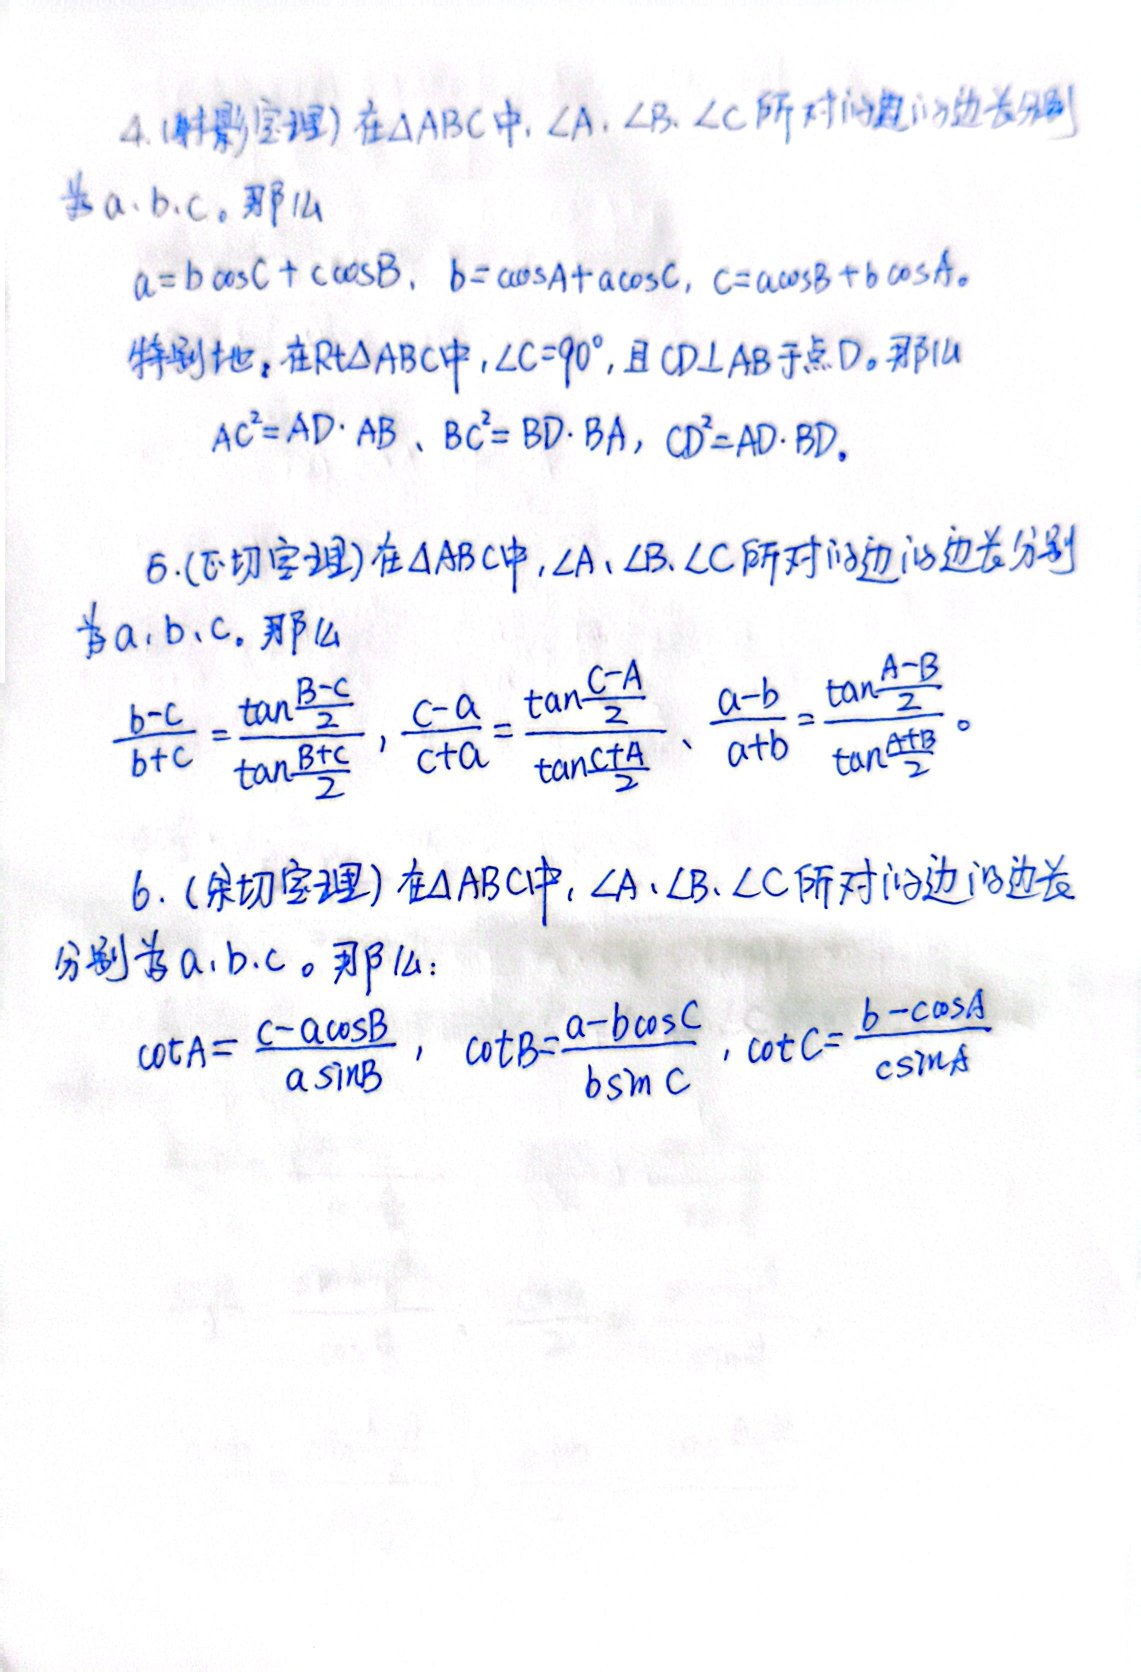 4.(射影定理)在△ABC中,∠A、∠B、∠C所对的边的边长分别
为a、b、c。那么
a=bcosC+ccosB、b=ccosA+acosC,c=acosB+bcosA。
特别地:在Rt△ABC中,∠C=90°,且CD⊥AB于点D。那么
AC²=AD·AB、BC²=BD·BA,CD²=AD·BD。
5.(正切定理)在△ABC中,∠A、∠B、∠C所对的边的边长分别
为a、b、c。那么
(b-c)/(b+c)=(tan (B-C)/2)/(tan (B+C)/2),(c-a)/(c+a)=(tan (C-A)/2)/(tan (C+A)/2)、(a-b)/(a+b)=(tan (A-B)/2)/(tan (A+B)/2)。
6.(余切定理)在△ABC中,∠A、∠B、∠C所对的边的边长
分别为a、b、c。那么:
cotA=(c-acosB)/(asinB),cotB=(a-bcosC)/(bsinC),cotC=(b-ccosA)/(csinA)